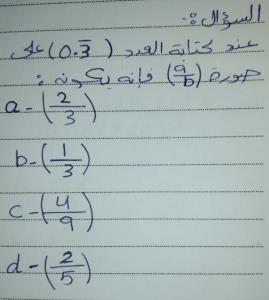 السؤال :-
عند كتابة العدد (0.3̅) على
صورة (a/b) فإنه يكون :
a - (2/3)
b - (1/3)
c - (4/9)
d - (2/5)